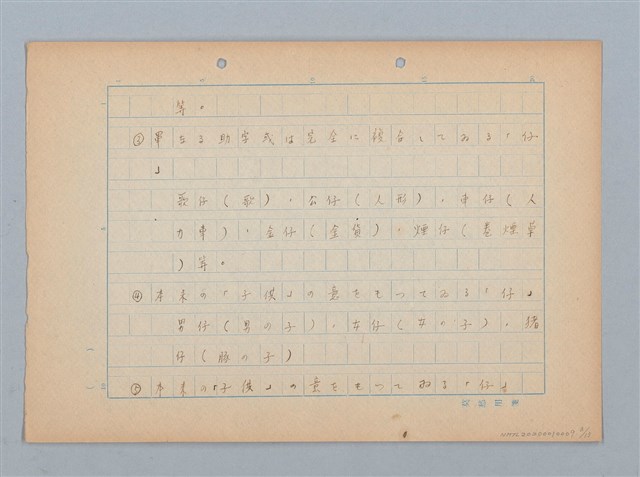 等。
③單なる助字或は完全に複合してゐる「仔
」
歌仔(歌)、公仔(人形)、車仔(人
力車)、金仔(金貨)、煙仔(巻煙草
)等。
④本来の「子供」の意をもつてゐる「仔」
男仔(男の子)、女仔(女の子)、猪
仔(豚の子)
⑤本来の「子供」の意をもつてゐる「仔」